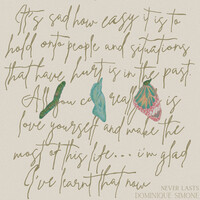 It's sad how easy it is to
hold onto people and situations
that have hurt is in the past.
All you can really is
love yourself and make the
most of this life... i'm glad
I've learnt that now
NEVER LASTS
DOMINIQUE SIMONE